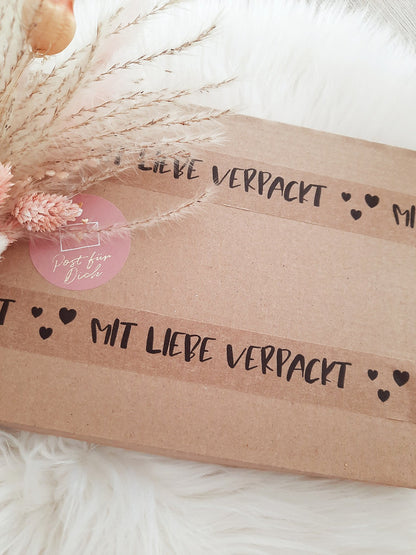 MIT LIEBE VERPACKT
Post für
Dich
MIT LIEBE VERPACKT